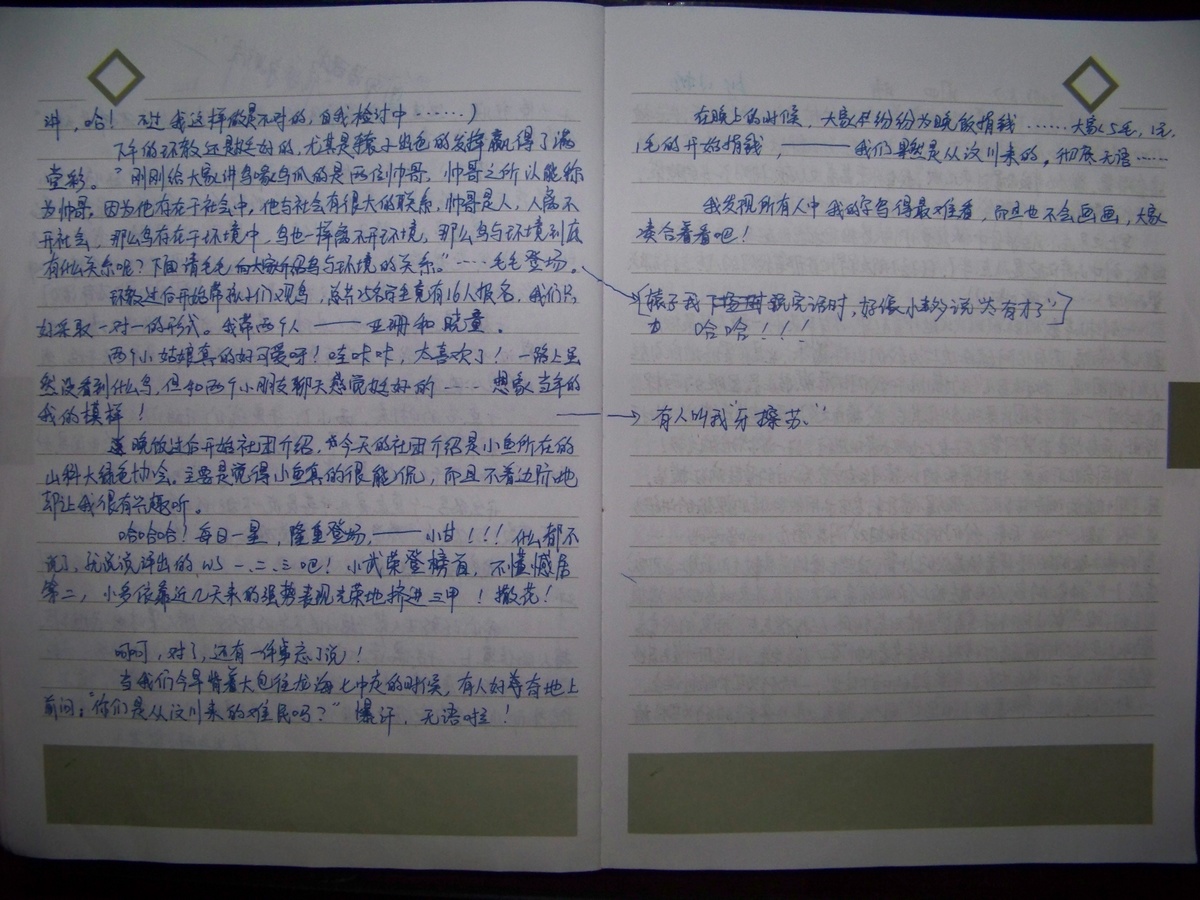 讲，哈！不过我这样做是不对的，自我检讨中……）
下午的环教还是挺好的，尤其是辕子出色的发挥赢得了满
堂彩。"刚刚给大家讲鸟喙鸟爪的是两位帅哥，帅哥之所以能称
为帅哥，因为他存在于社会中，他与社会有很大的联系，帅哥是人，人离不
开社会，那么鸟存在于环境中，鸟也一样离不开环境，那么鸟与环境到底
有什么关系呢？下面请毛毛向大家介绍鸟与环境的关系。"……毛毛登场。
环教过后开始带孩子们观鸟，总共25名学生竟有16人报名，我们只
好采取一对一的形式。我带两个人——亚珊和晓童。
两个小姑娘真的好可爱呀！哇咔咔，太喜欢了！一路上虽
然没看到什么鸟，但和两个小朋友聊天感觉挺好的……想象当年的
我的模样！
晚饭过后开始社团介绍，今天的社团介绍是小鱼所在的
山科大绿色协会。主要是觉得小鱼真的很能侃，而且不着边际地
却让我很有兴趣听。
哈哈哈！每日一星，隆重登场，——小甘！！！什么都不
说了，就说说评出的WS一、二、三吧！小武荣登榜首，不懂憾居
第二，小多依靠近几天来的强势表现光荣地挤进三甲！撒花！
呵呵，对了，还有一件事忘了说！
当我们今早背着大包往龙海七中走的时候，有人好奇地上
前问："你们是从汶川来的难民吗？"爆汗，无语啦！
在晚上的时候，大家纷纷为晚饭捐钱……大家5毛，1元，
1毛的开始捐钱，——我们果然是从汶川来的。彻底无语……
我发现所有人中我的字写得最难看，而且也不会画画，大家
凑合着看吧！
[辕子我 说完话时，好像小多说"太有才了"]
哈哈！！！
有人叫我"牙擦苏"